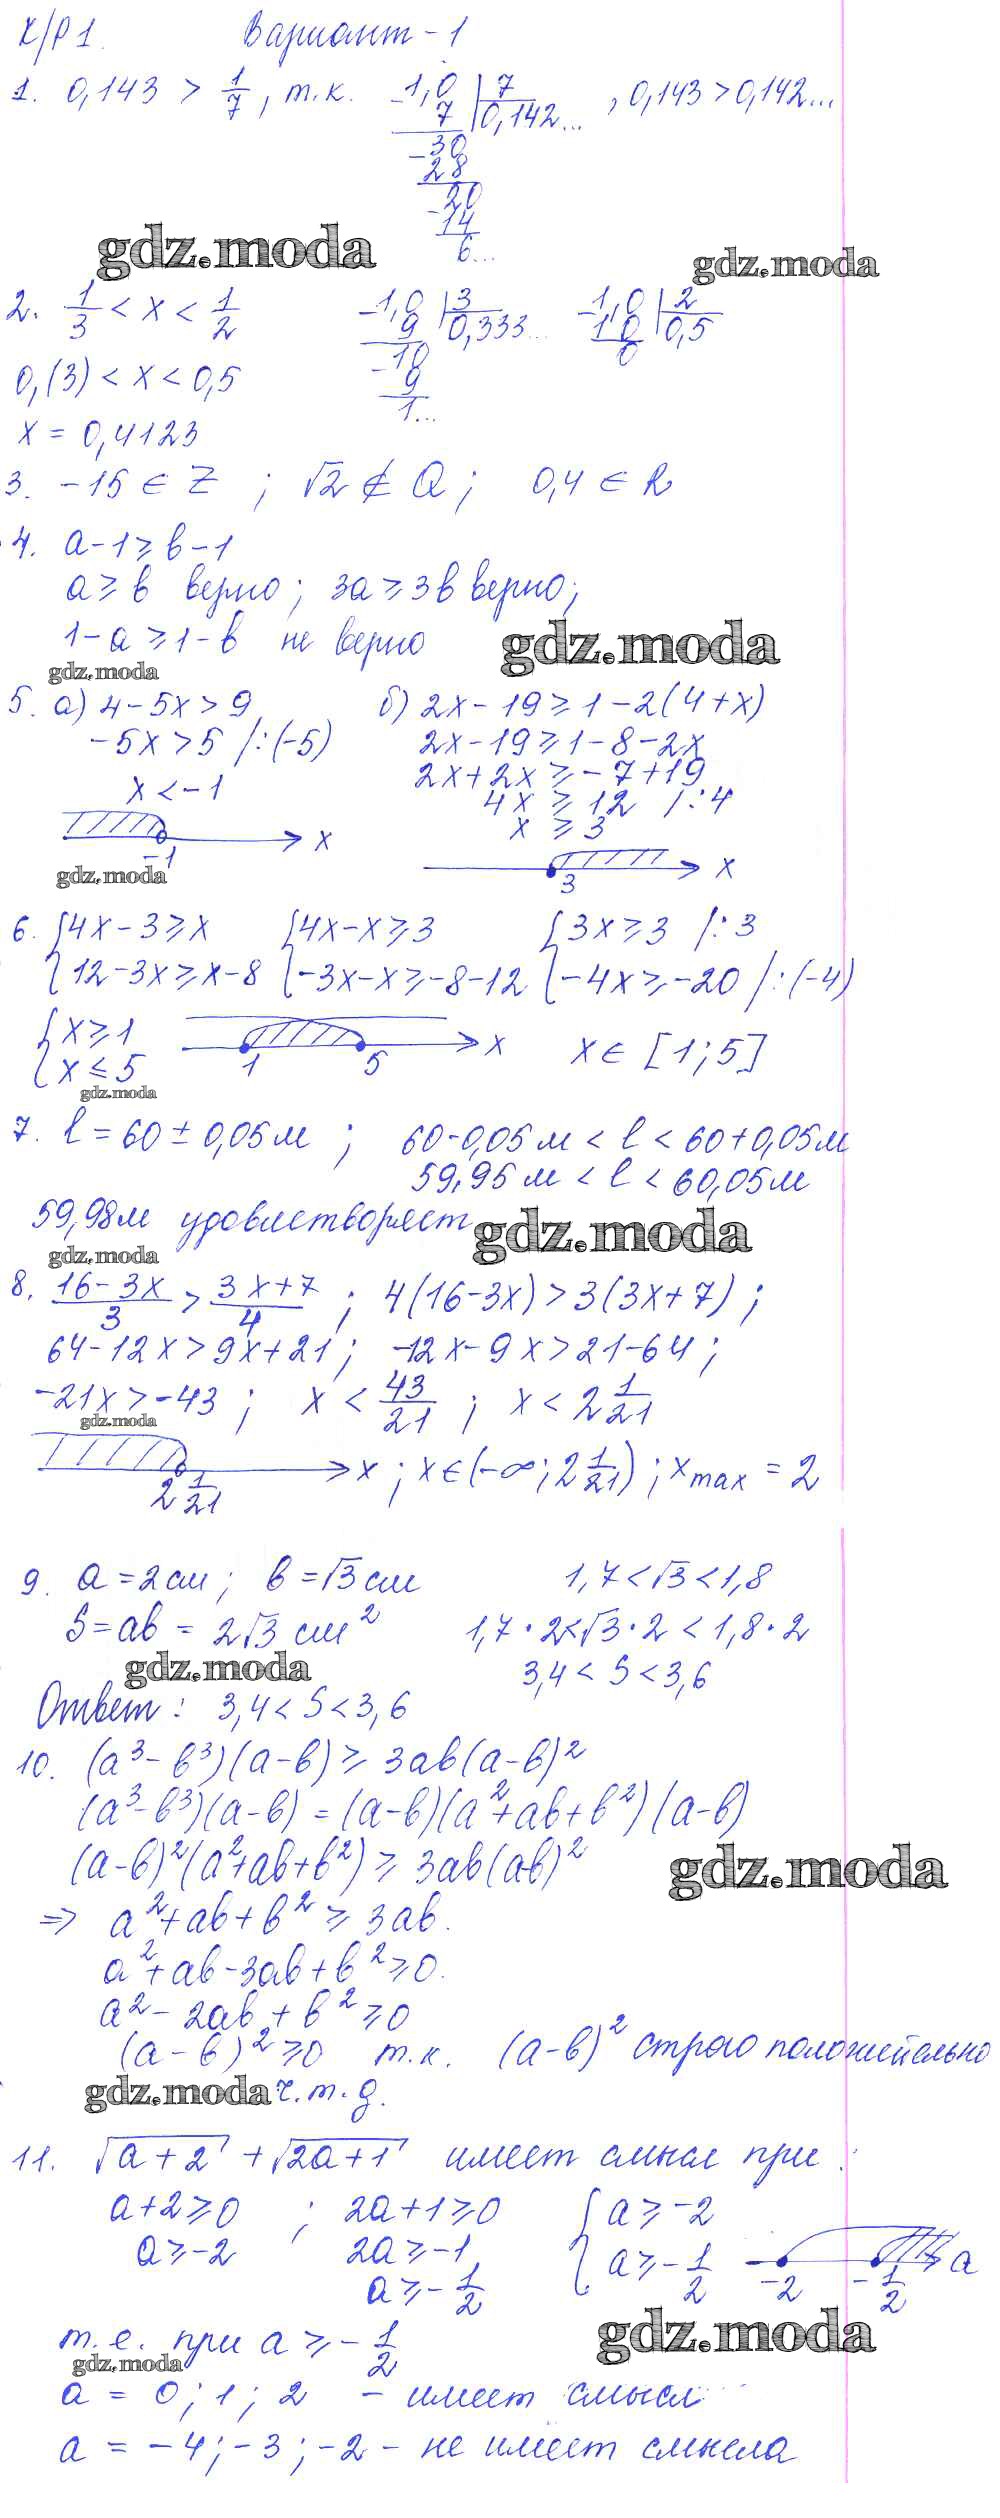 К/Р 1. Вариант - 1
1. 0,143 > 1/7, т.к. -1,0 | 7 , 0,143 > 0,142...
7 0,142...
-30
28
-20
14
6...
gdz.moda
gdz.moda
2. 1/3 < x < 1/2 -1,0 | 3 -1,0 | 2
9 0,333... 1 0 0,5
-10 0
0,(3) < x < 0,5 9
1...
x = 0,4123
3. -15 ∈ Z ; √2 ∉ Q ; 0,4 ∈ R
4. a - 1 ⩾ b - 1
a ⩾ b верно ; 3a ⩾ 3b верно ;
1 - a ⩾ 1 - b не верно
gdz.moda
gdz.moda
5. а) 4 - 5x > 9 б) 2x - 19 ⩾ 1 - 2(4 + x)
-5x > 5 /:(-5) 2x - 19 ⩾ 1 - 8 - 2x
2x + 2x ⩾ -7 + 19
x < -1 4x ⩾ 12 /:4
x ⩾ 3
x
-1
x
3
gdz.moda
6. {4x - 3 ⩾ x {4x - x ⩾ 3 {3x ⩾ 3 /:3
{12 - 3x ⩾ x - 8 {-3x - x ⩾ -8 - 12 {-4x ⩾ -20 /:(-4)
{x ⩾ 1 x x ∈ [1; 5]
{x ⩽ 5 1 5
gdz.moda
7. l = 60 ± 0,05 м ; 60 - 0,05 м < l < 60 + 0,05 м
59,95 м < l < 60,05 м
59,98 м удовлетворяет
gdz.moda
gdz.moda
8. (16 - 3x)/3 > (3x + 7)/4 ; 4(16 - 3x) > 3(3x + 7) ;
64 - 12x > 9x + 21 ; -12x - 9x > 21 - 64 ;
-21x > -43 ; x < 43/21 ; x < 2 1/21
gdz.moda
x ; x ∈ (-∞; 2 1/21) ; x max = 2
2 1/21
9. a = 2 см ; b = √3 см 1,7 < √3 < 1,8
S = ab = 2√3 см² 1,7 · 2 < √3 · 2 < 1,8 · 2
3,4 < S < 3,6
gdz.moda
Ответ : 3,4 < S < 3,6
10. (a³ - b³)(a - b) ⩾ 3ab(a - b)²
(a³ - b³)(a - b) = (a - b)(a² + ab + b²)(a - b)
(a - b)²(a² + ab + b²) ⩾ 3ab(a-b)²
gdz.moda
⇒ a² + ab + b² ⩾ 3ab.
a² + ab - 3ab + b² ⩾ 0.
a² - 2ab + b² ⩾ 0
(a - b)² ⩾ 0 т.к. (a - b)² строго положительно
gdz.moda ч.т.д.
11. √(a + 2) + √(2a + 1) имеет смысл при :
a + 2 ⩾ 0 ; 2a + 1 ⩾ 0 {a ⩾ -2
a ⩾ -2 2a ⩾ -1 {a ⩾ -1/2 a
a ⩾ -1/2 -2 -1/2
т.е. при a ⩾ -1/2
gdz.moda
gdz.moda
a = 0 ; 1 ; 2 - имеет смысл
a = -4 ; -3 ; -2 - не имеет смысла